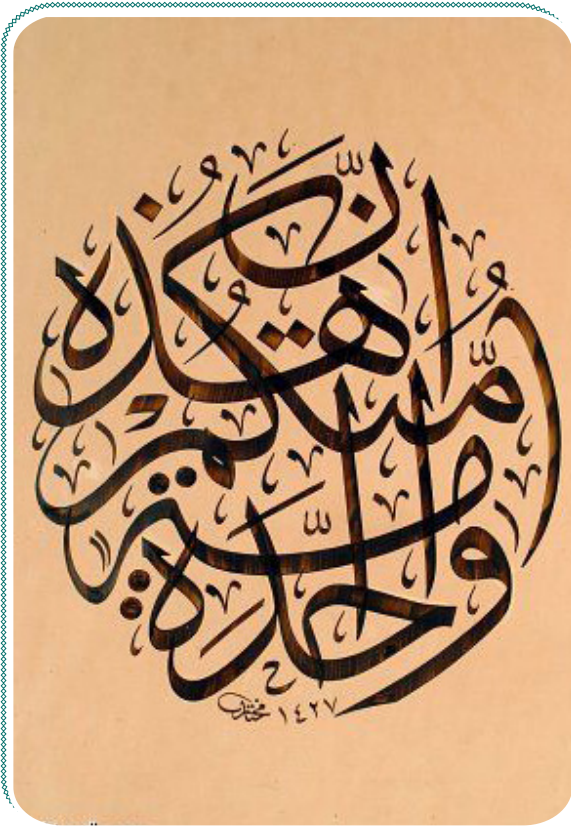 إِنَّ هَٰذِهِ أُمَّتُكُمْ أُمَّةً وَاحِدَةً
١٤٢٧